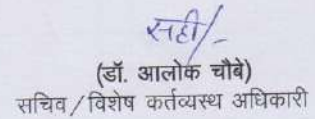 सही/-
(डॉ. आलोक चौबे)
सचिव/विशेष कर्तव्यस्थ अधिकारी